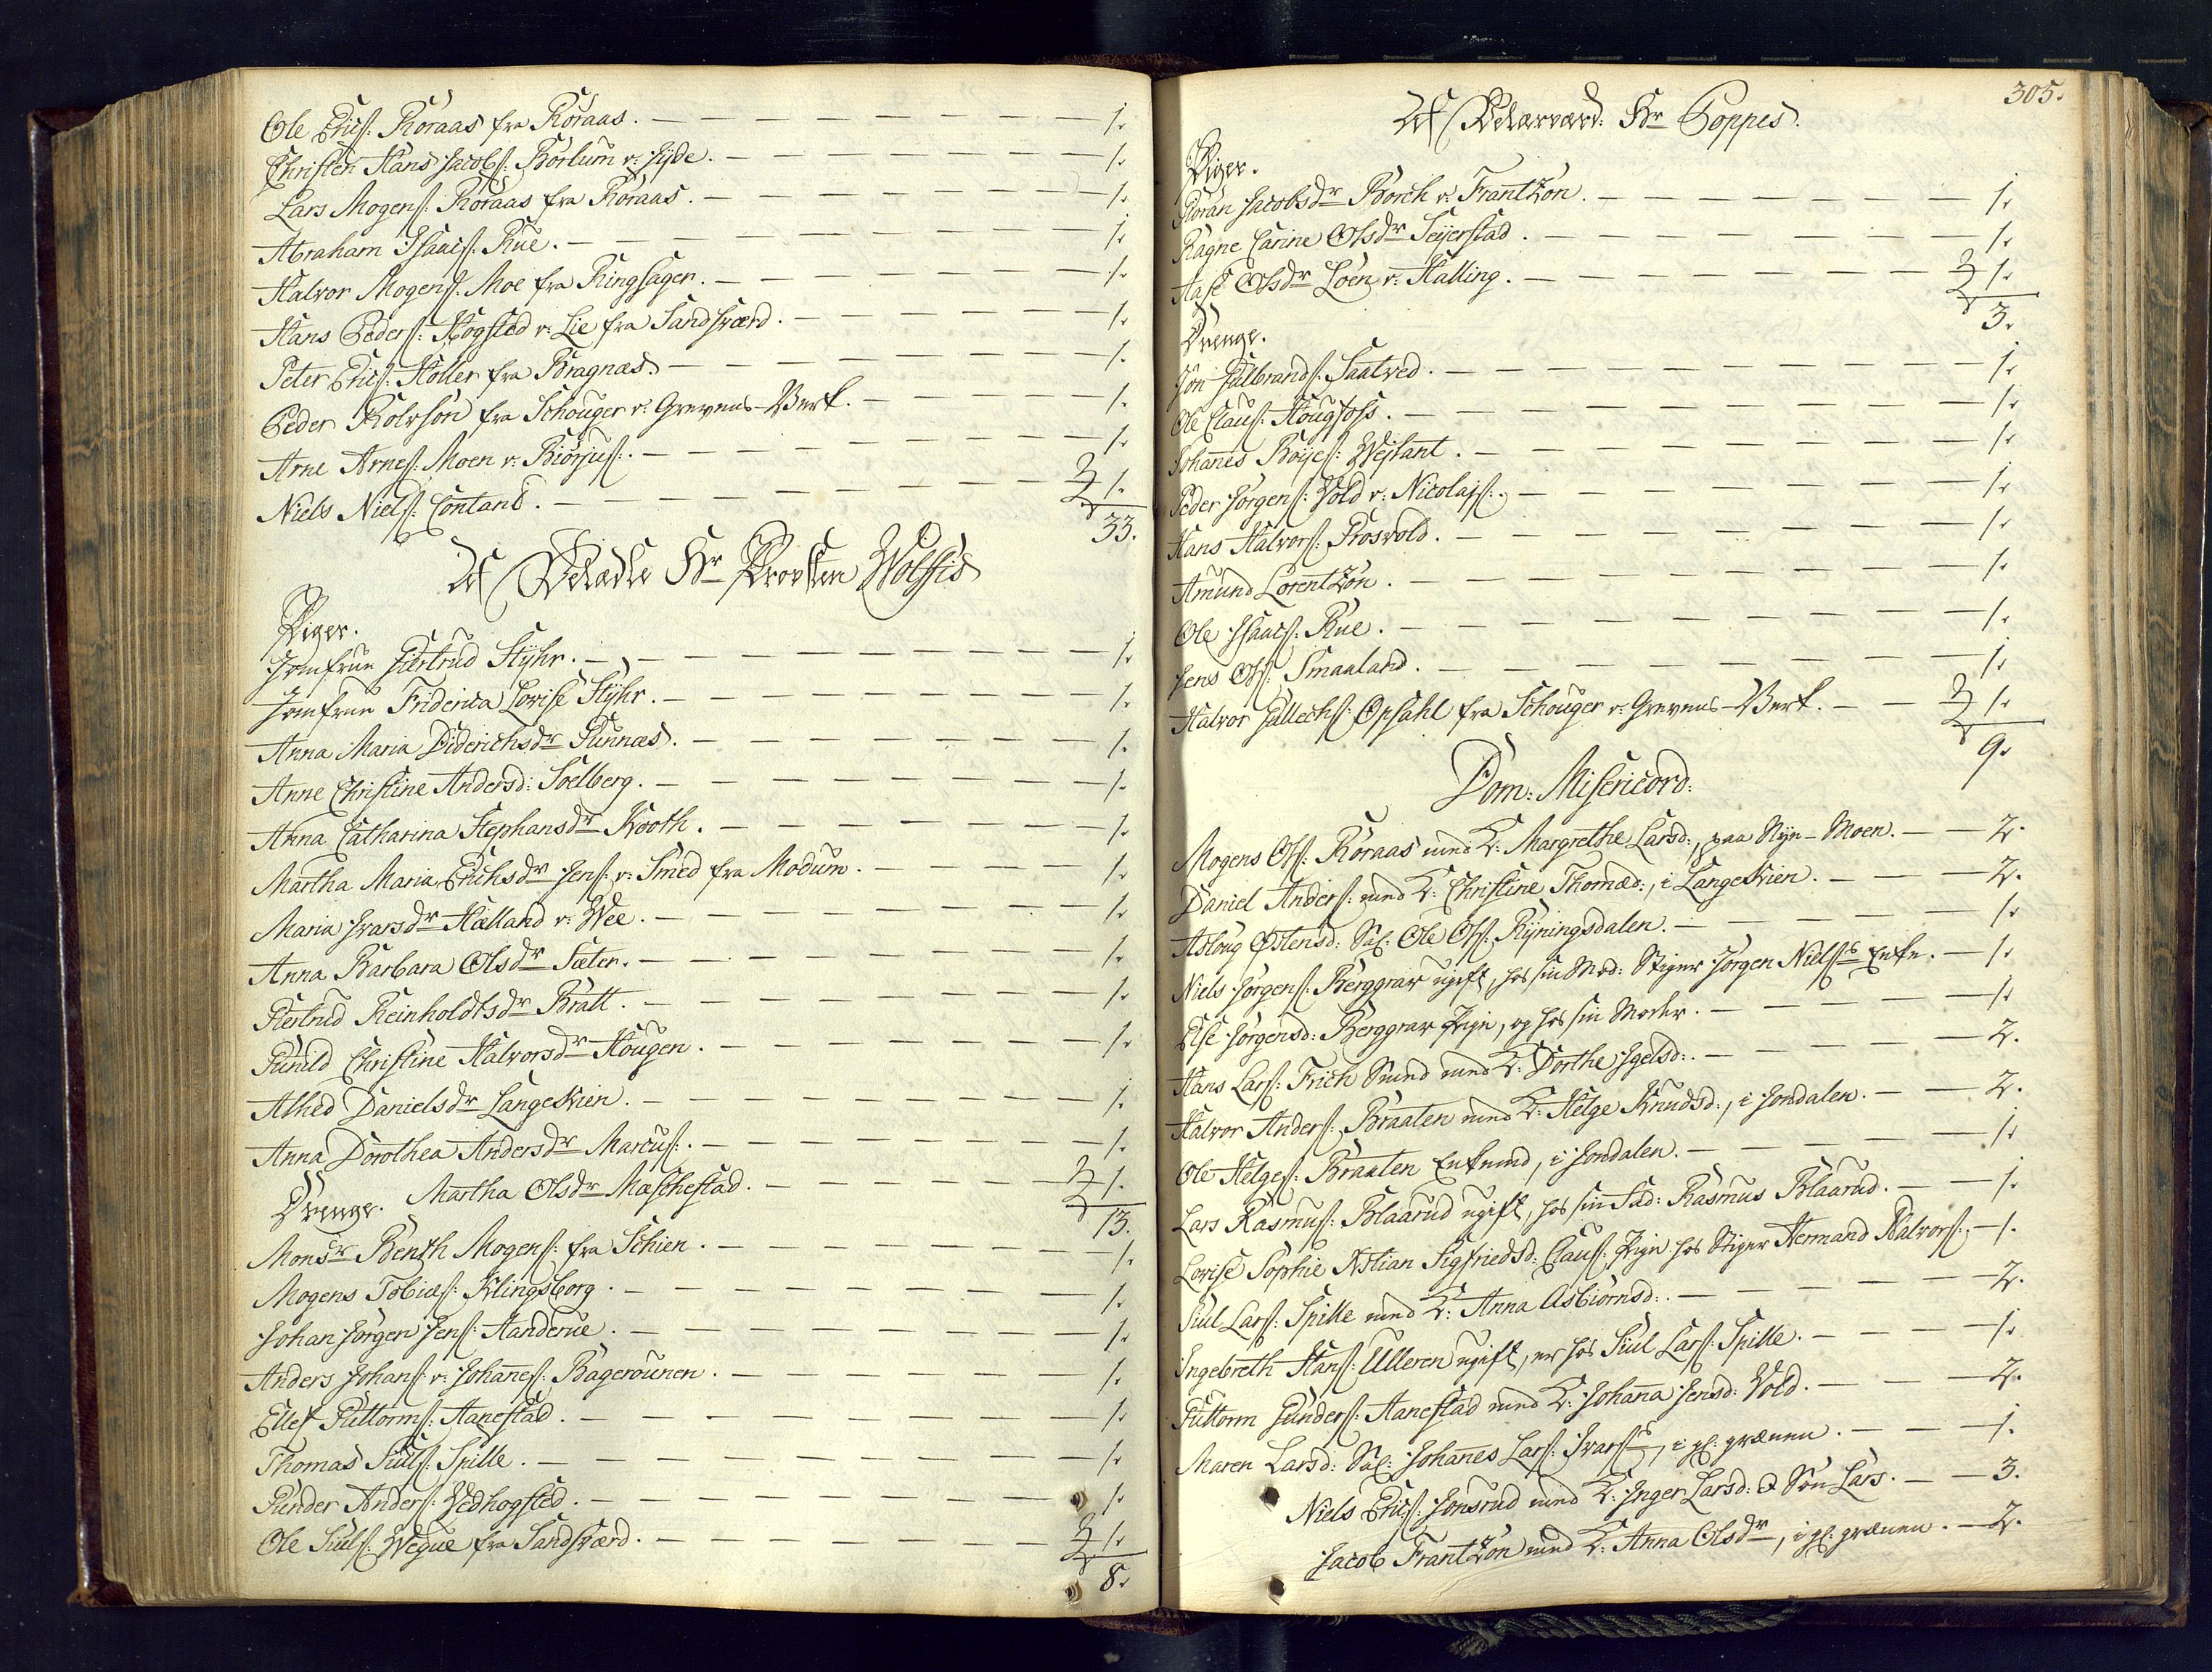 Ole Erics: Røraas fra Røraas. — 1.
Christen Hans Jacobs: Børlum v: Jyde. — 1.
Lars Mogens: Røraas fra Røraas. — 1.
Abraham Isaacs: Rue. — 1.
Halvor Mogens: Moe fra Ringsager. — 1.
Hans Peders: Høgsted v: Lie fra Sandsværd. — 1.
Peter Erics: Holler fra Bragnæs. — 1.
Peder Rolvsøn fra Schouger v: Grevens-Verk. — 1.
Arne Arnes: Moen v: Biørjus:. — 1.
Niels Niels: Contand. — 1.
33.
Af Velædle Hr Provsten Wolffis
Piger.
Jomfrue Giertrud Styhr. — 1.
Jomfrue Friderica Lovise Styhr. — 1.
Anna Maria Diderichsdr Gunnæs. — 1.
Anne Christine Andersd: Soelberg. — 1.
Anna Catharina Stephansdr Kooth. — 1.
Martha Maria Erichsdr Jens: v: Smed fra Modum. — 1.
Maria Ivarsdr Hælland v: Wee. — 1.
Anna Barbara Olsdr Sæter. — 1.
Giertrud Reinholdtsdr Bratt. — 1.
Gunild Christine Halvorsdr Hougen. — 1.
Alhed Danielsdr Langekien. — 1.
Anna Dorothea Andersdr Marcus:. — 1.
Martha Olsdr Maschestad. — 1.
Drenge.
13.
Monsr Benth Mogens: fra Schien. — 1.
Mogens Tobiæs: Klingsborg. — 1.
Johan Jørgen Jens: Aanderue. — 1.
Anders Johans: v: Johanes: Bagerounen. — 1.
Ellef Guttorms: Aanestad. — 1.
Thomas Siuls: Spille. — 1.
Gunder Anders: Vedhogsted. — 1.
Ole Siuls: Wegue fra Sandsværd. — 1.
8.
305.
Af Velærværd: Hr Poppes.
Piger.
Jøran Jacobsdr Borch v: Frantzøn. — 1.
Ragne Carine Olsdr Seijerstad. — 1.
Aase Olsdr Loen v: Halling. — 1.
3.
Drenge.
Jon Gulbrands: Saatved. — 1.
Ole Claus: Hougfoss. — 1.
Johanes Bøijes: Wejlant. — 1.
Peder Jørgens: Vold v: Nicolajs:. — 1.
Hans Halvors: Rosvold. — 1.
Amund Lorentzøn. — 1.
Ole Isaacs: Rue. — 1.
Jens Ols: Smaaland. — 1.
Halvor Gullechs: Opsahl fra Schouger v: Grevens-Verk. — 1.
9.
Dom: Misericord:
Mogens Ols: Røraas med K: Margrethe Larsd:, paa Nye-Moen. — 2.
Daniel Anders: med K: Christine Thomæd:, i Langekien. — 2.
Asloug Østensd: Sal: Ole Ols: Ryningsdalen. — 1.
Niels Jørgens: Berggrav ugift, hos sin Mod: Stiger Jørgen Nielss Enke. — 1.
Else Jørgensd: Berggrav Pige, og hos sin Moder. — 1.
Hans Lars: Frich Smed med K: Dorthe Igelsd:. — 2.
Halvor Anders: Braaten med K: Helge Knudsd:, i Jondalen. — 2.
Ole Helges: Braaten Enkemd, i Jondalen. — 1.
Lars Rasmus: Blaarud ugift, hos sin Fad: Rasmus Blaarud. — 1.
Lovise Sophie Xstian Sigfriedsd: Claus: Pige hos Stiger Hermand Halvors:. — 1.
Siul Lars: Spille med K: Anna Asbiørnsd:. — 2.
Ingebreth Hans: Ulleren ugift, er hos Siul Lars: Spille. — 1.
Guttorm Gunders: Aanestad med K: Johana Jensd: Vold. — 2.
Maren Larsd: Sal: Johanes Lars: Ivarss, i gl: grænen. — 1.
Niels Erics: Jonsrud med K: Inger Larsd: & Søn Lars. — 3.
Jacob Frantzøn med K: Anna Olsdr, i gl: grænen. — 2.